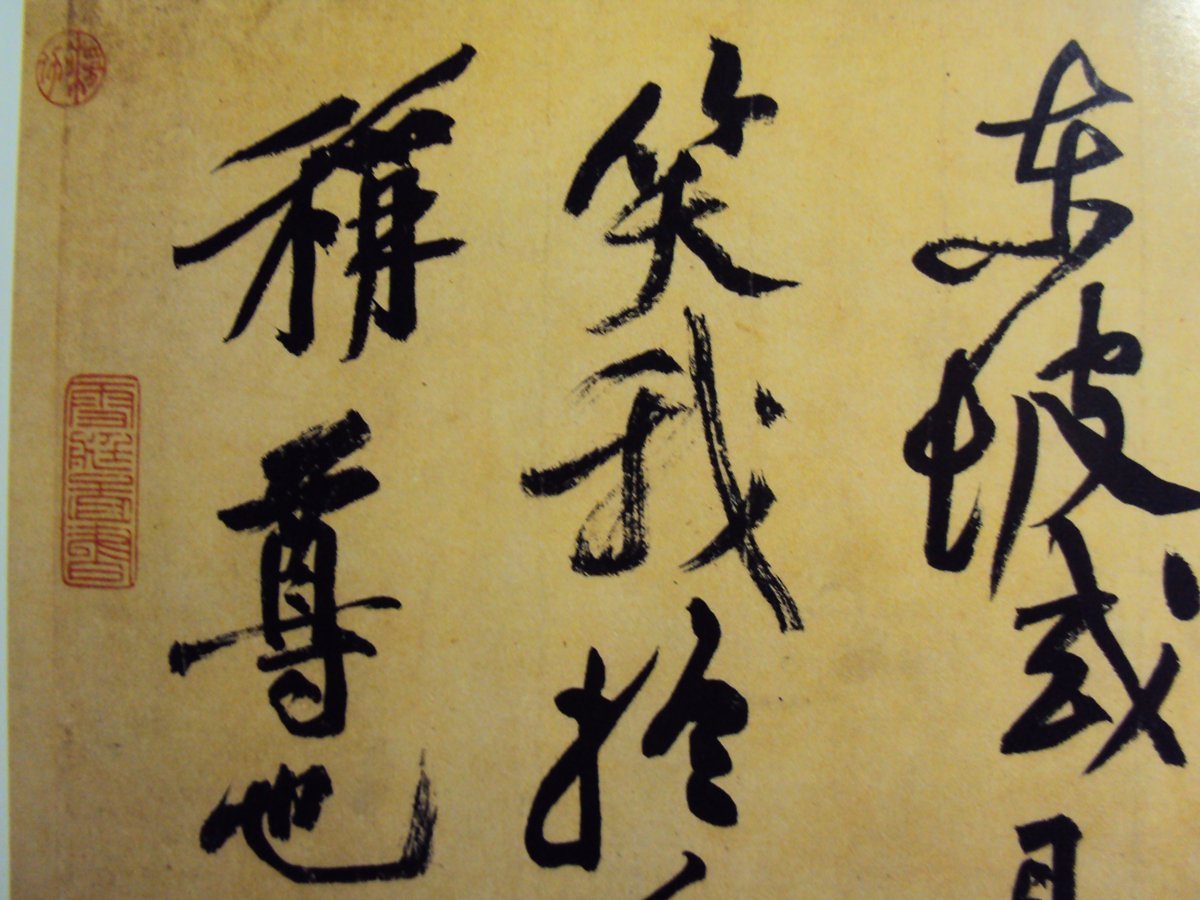 東坡或
笑我於
稱尊也